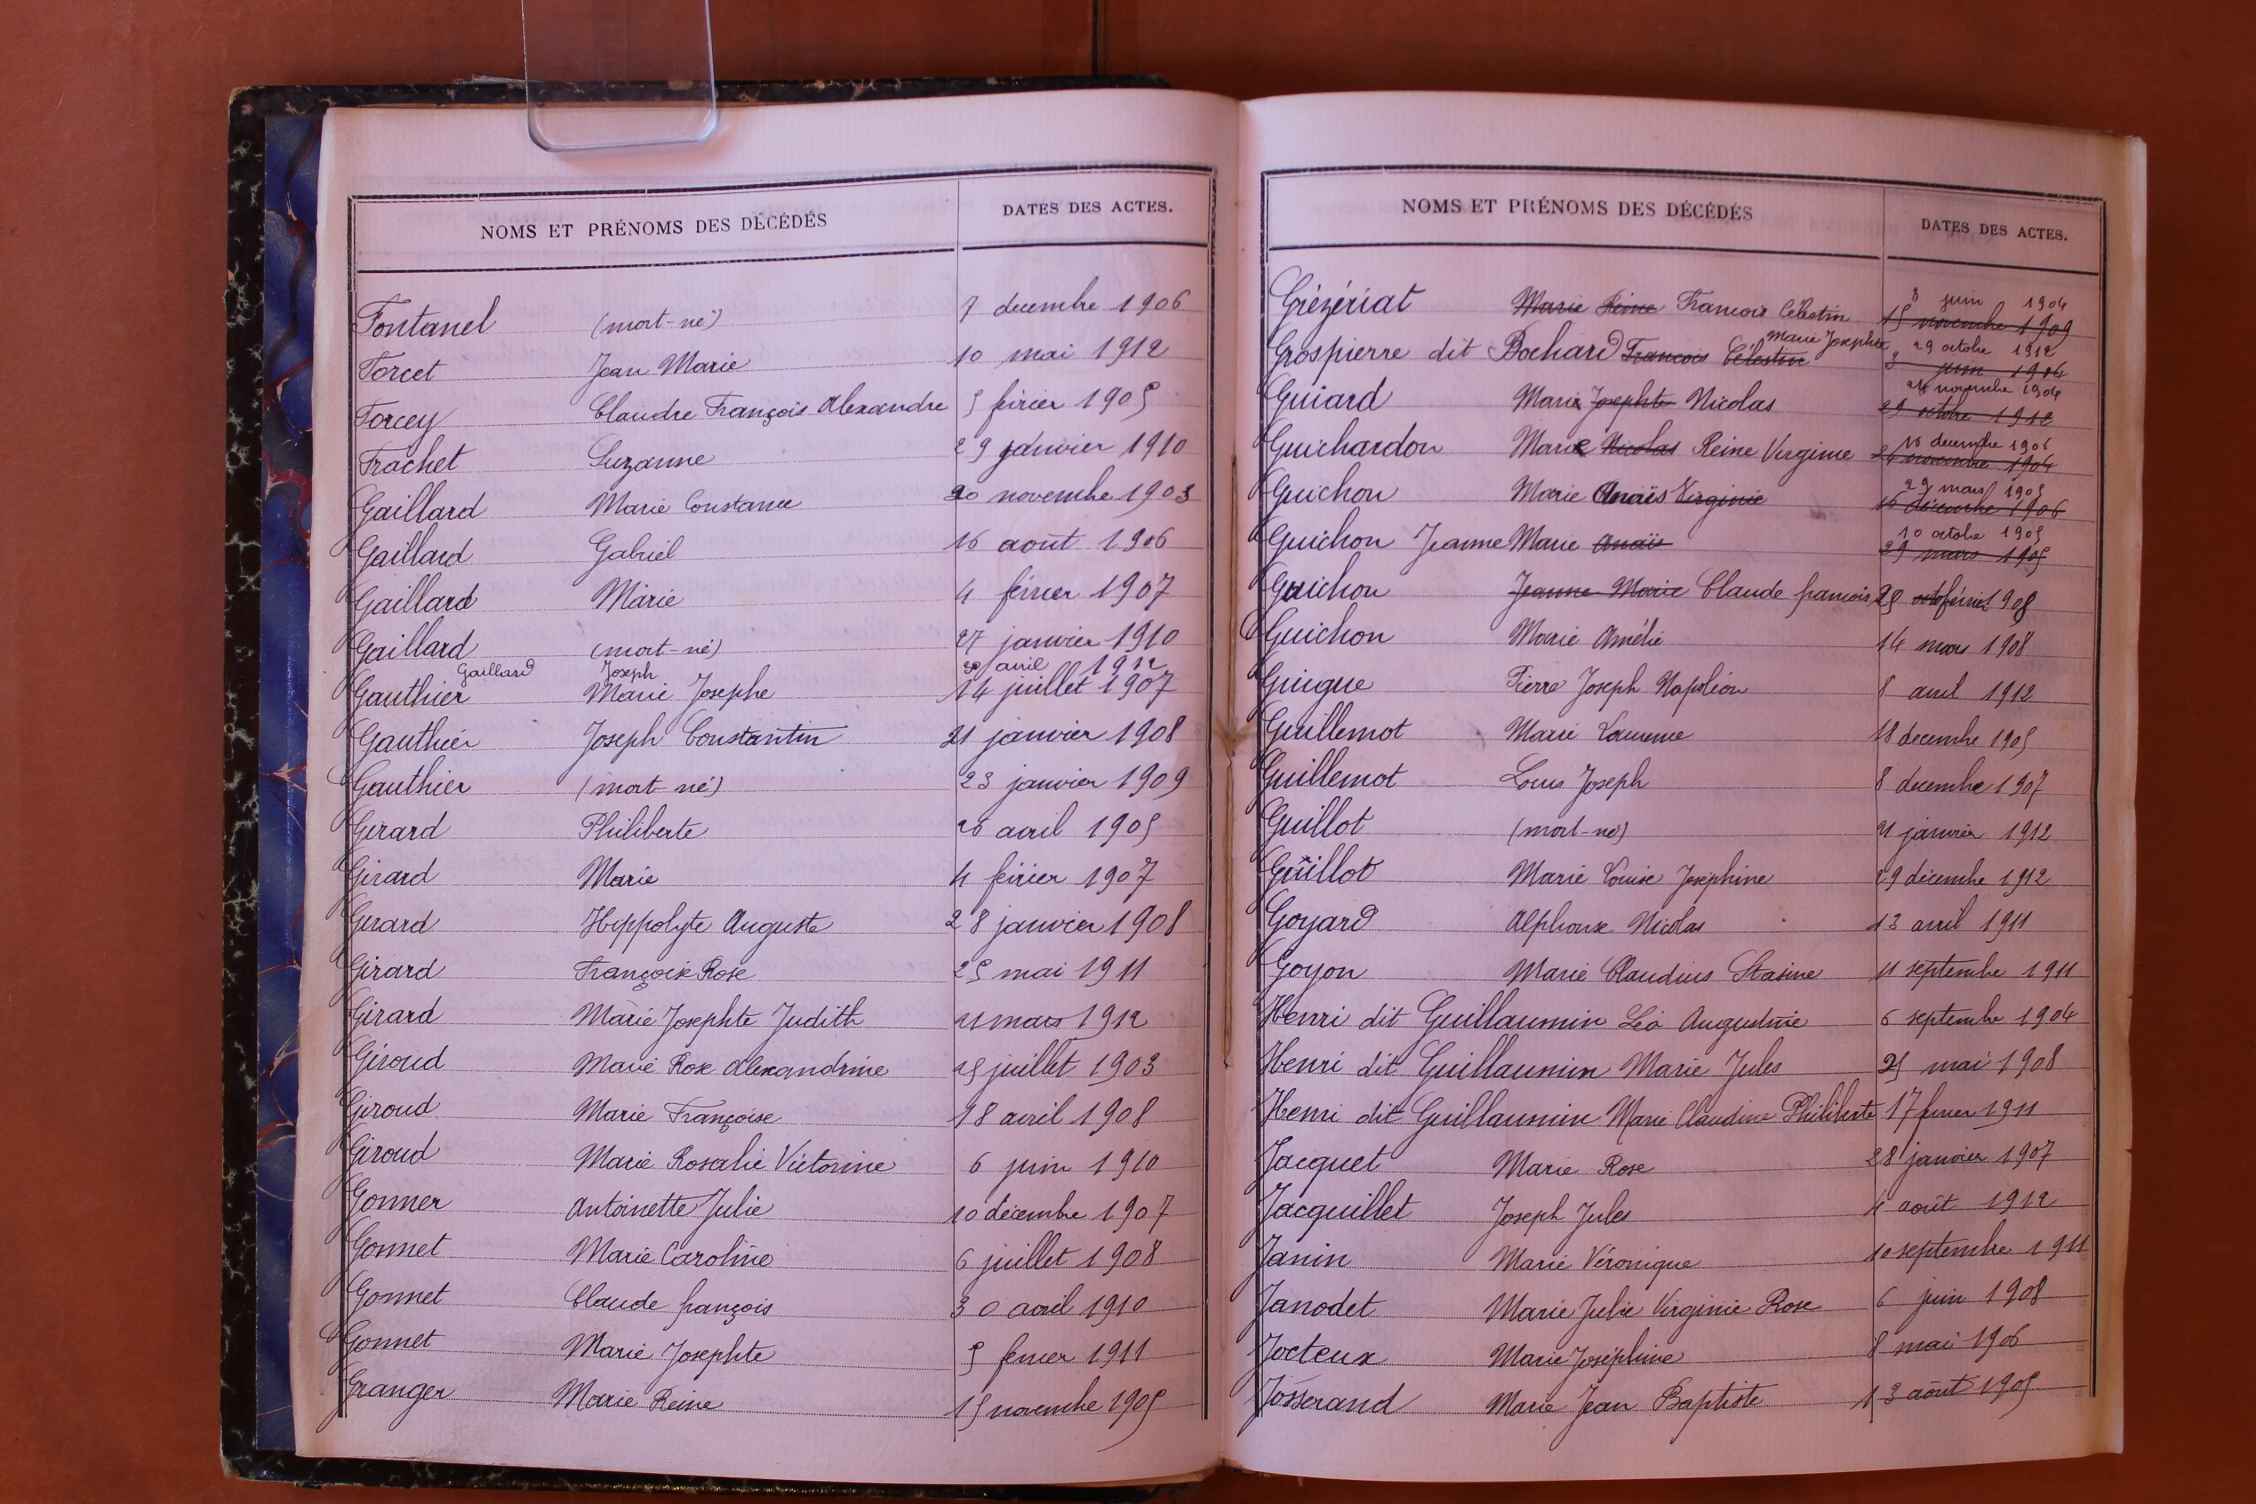 NOMS ET PRÉNOMS DES DÉCÉDÉS DATES DES ACTES.
Fontanel (mort-né) 7 decembre 1906
Forcet Jean Marie 10 mai 1912
Forcey Claudre François Alexandre 5 février 1905
Frachet Suzanne 29 janvier 1910
Gaillard Marie Constance 20 novembre 1903
Gaillard Gabriel 16 août 1906
Gaillard Marie 4 février 1907
Gaillard (mort-né) 27 janvier 1910
Gaillard Joseph 30 avril 1912
Gauthier Marie Josephe 14 juillet 1907
Gauthier Joseph Constantin 21 janvier 1908
Gauthier (mort-né) 23 janvier 1909
Girard Philiberte 26 avril 1905
Girard Marie 4 février 1907
Girard Hippolyte Auguste 28 janvier 1908
Girard Françoise Rose 25 mai 1911
Girard Marie Josephte Judith 21 mars 1912
Giroud Marie Rose Alexandrine 25 juillet 1903
Giroud Marie Françoise 18 avril 1908
Giroud Marie Rosalie Victorine 6 juin 1910
Gonner Antoinette Julie 10 décembre 1907
Gonnet Marie Caroline 6 juillet 1908
Gonnet Claude françois 30 avril 1910
Gonnet Marie Josephte 5 fevrier 1911
Granger Marie Reine 15 novembre 1905
NOMS ET PRÉNOMS DES DÉCÉDÉS DATES DES ACTES.
8 juin 1904
Grézériat Marie Reine Francois Célestin 15 novembre 1909
Marie Josephte 29 octobre 1912
Grospierre dit Bochard Francois Célestin 8 juin 1904
24 novembre 1904
Guiard Marie Josephte Nicolas 29 octobre 1912
16 decembre 1906
Guichardon Marie Nicolas Reine Virginie 24 novembre 1904
29 mars 1905
Guichon Marie Anaïs Virginie 16 décembre 1906
10 octobre 1905
Guichon Jeanne Marie Anaïs 29 mars 1905
Guichon Jeanne Marie Claude francois 25 février 1908
Guichon Marie Amélie 14 mars 1908
Guigue Pierre Joseph Napoléon 8 avril 1912
Guillemot Marie Laurence 18 decembre 1905
Guillemot Louis Joseph 8 decembre 1907
Guillot (mort-né) 21 janvier 1912
Guillot Marie Louise Josephine 29 décembre 1912
Goyard Alphonse Nicolas 13 avril 1911
Goyon Marie Claudius Stasine 11 septembre 1911
Henri dit Guillaumin Léo Augustine 6 septembre 1904
Henri dit Guillaumin Marie Jules 25 mai 1908
Henri dit Guillaumin Marie Claudine Philiberte 17 fevrier 1911
Jacquet Marie Rose 28 janvier 1907
Jacquillet Joseph Jules 4 août 1912
Janin Marie Véronique 10 septembre 1911
Janodet Marie Julie Virginie Rose 6 juin 1908
Jocteux Marie Joséphine 8 mai 1906
Josserand Marie Jean Baptiste 13 août 1905